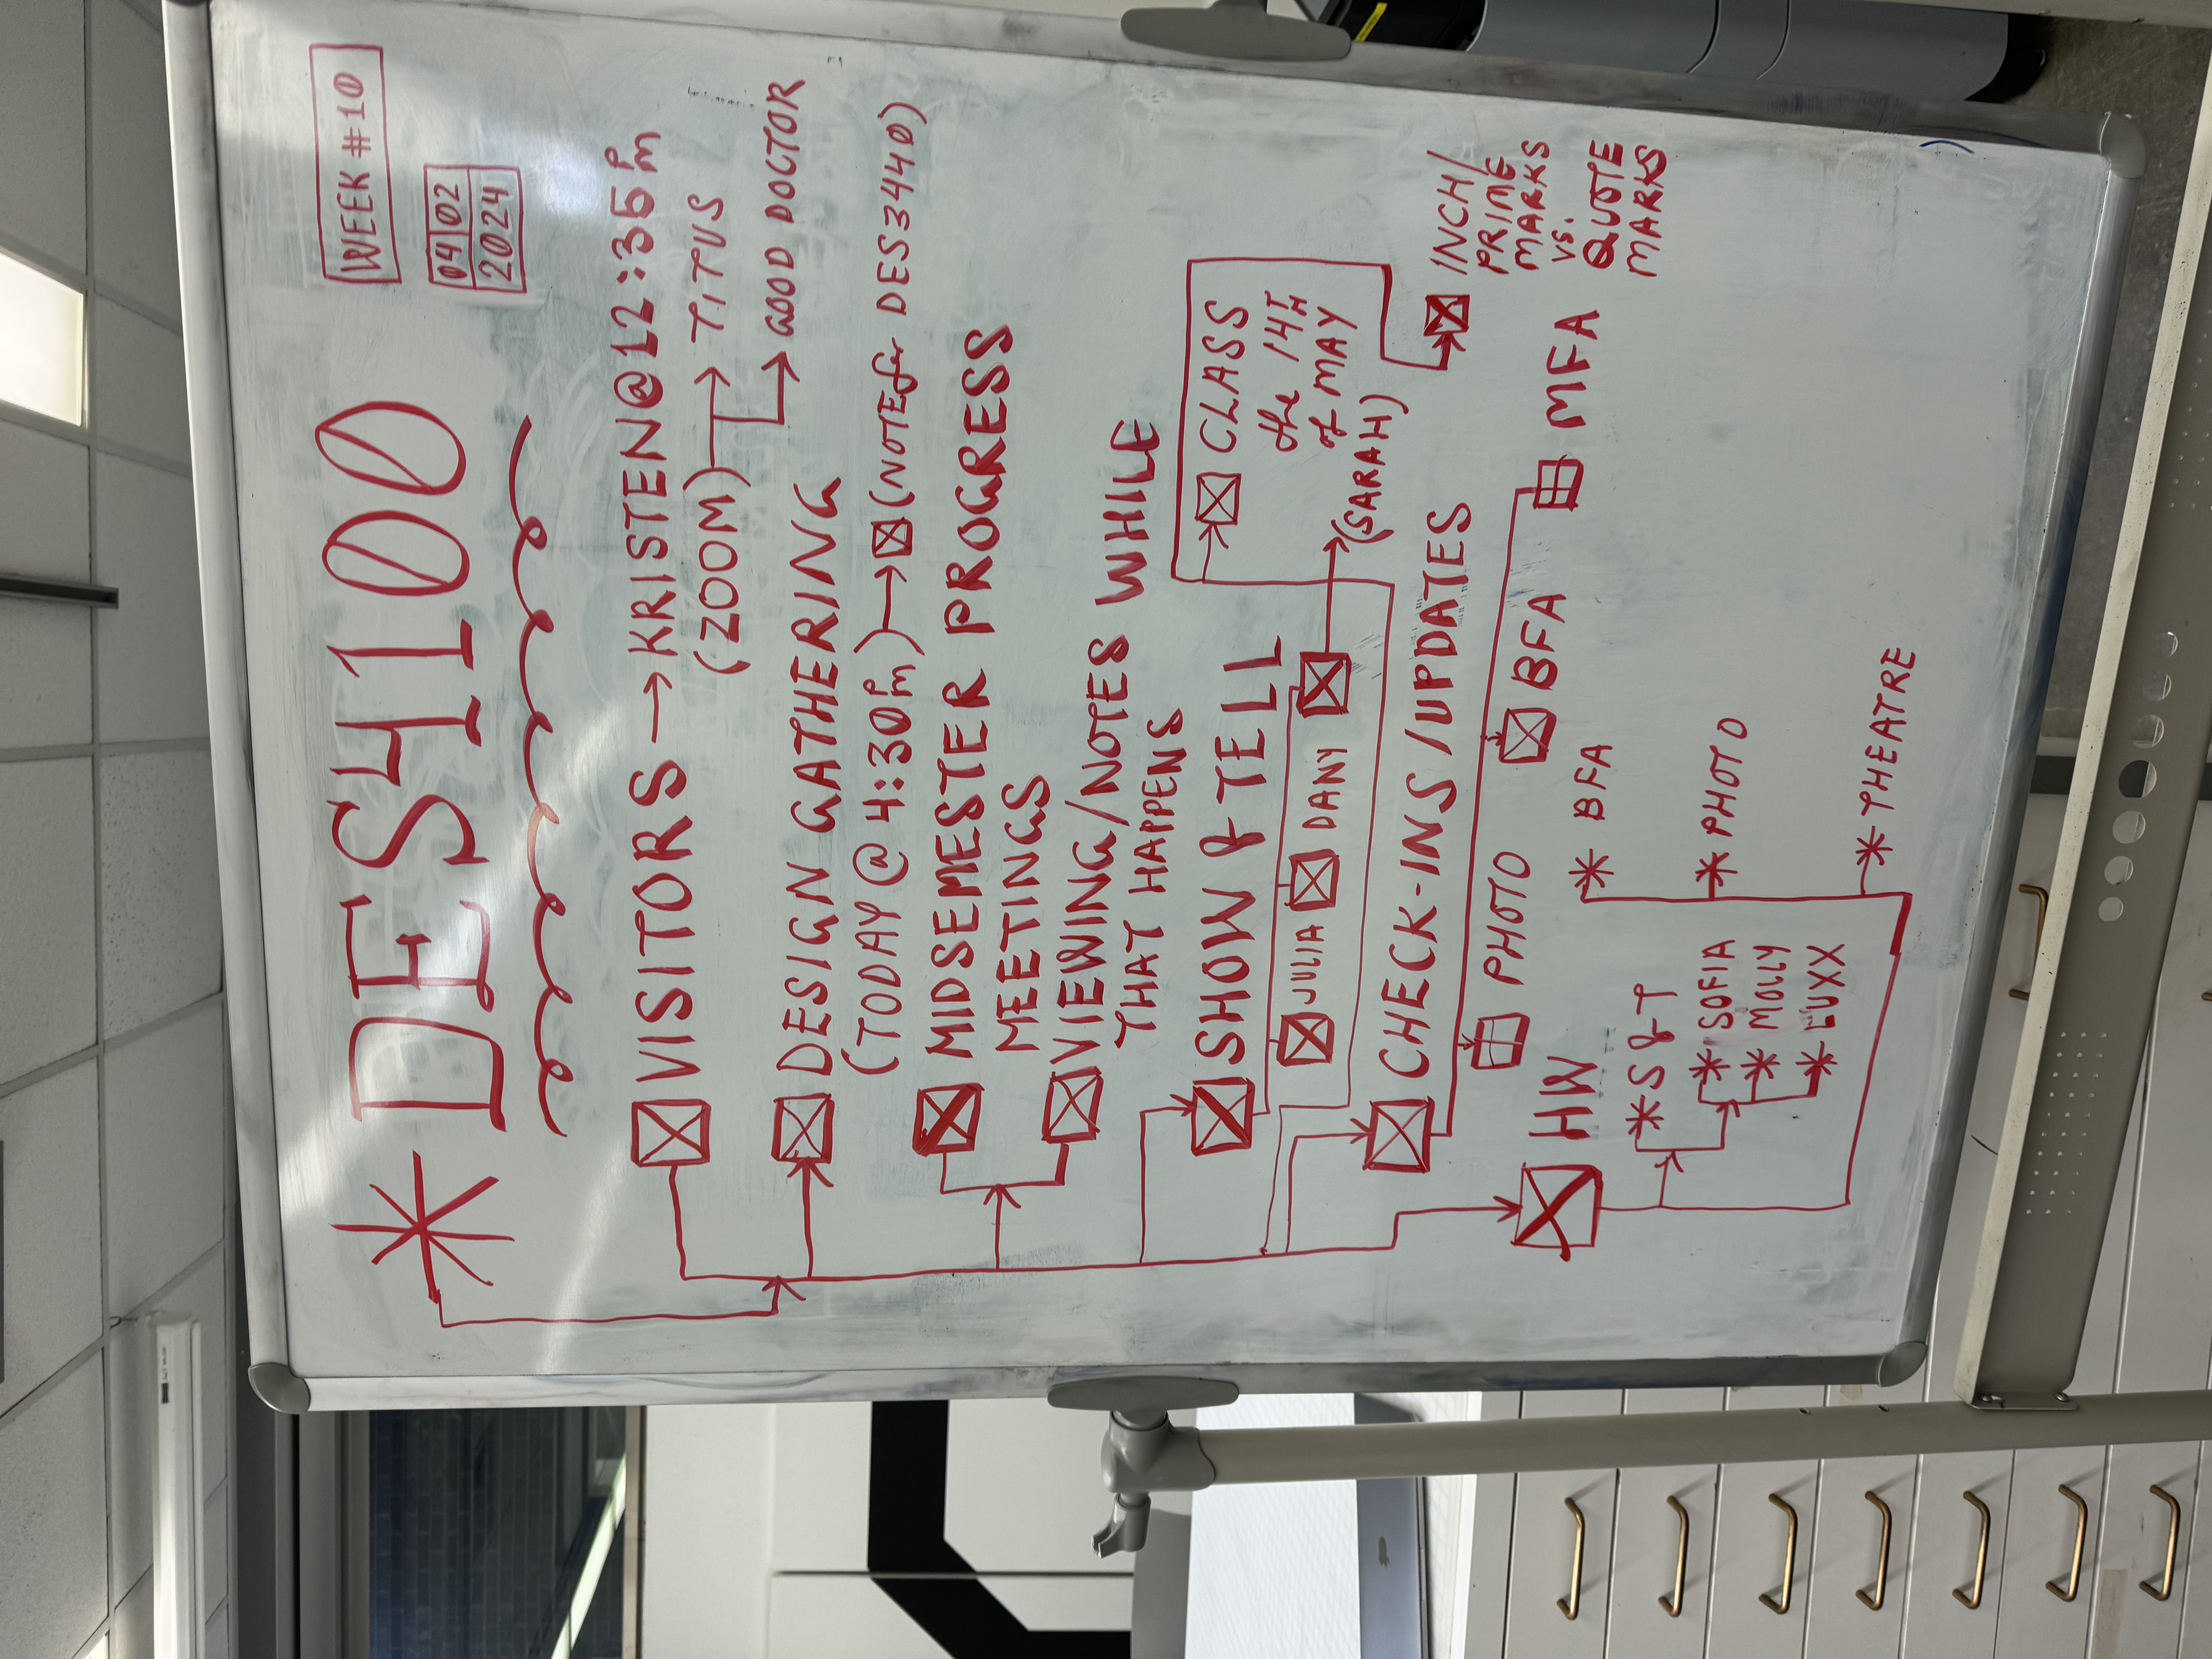 WEEK #10
*DES4100
04|02
2024
VISITORS → KRISTEN@12:35Pm
(ZOOM) → TITUS
→ GOOD DOCTOR
DESIGN GATHERING
(TODAY @ 4:30Pm) → (NOTE for DES3440)
MIDSEMESTER PROGRESS
MEETINGS
VIEWING/NOTES WHILE
THAT HAPPENS
SHOW & TELL
JULIA
DANY
(SARAH)
CLASS
the 14TH
of MAY
INCH/
PRIME
MARKS
vs.
QUOTE
MARKS
CHECK-INS/UPDATES
PHOTO
BFA
MFA
HW
* S&T
* SOFIA
* MOLLY
* LUXX
* BFA
* PHOTO
* THEATRE